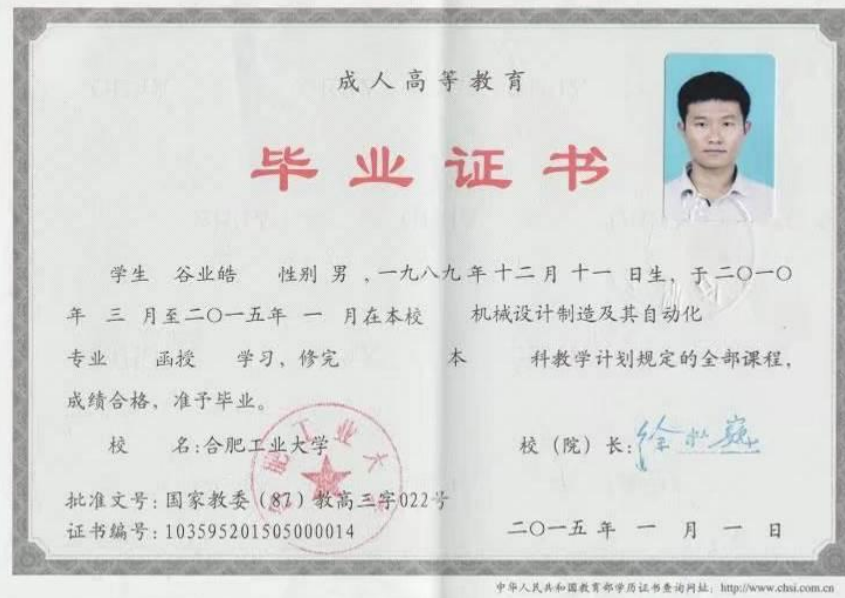 成人高等教育
毕业证书
学生 谷业皓 性别 男 ,一九八九年十二月十一日生,于二〇一〇
年 三 月至二〇一五年 一 月在本校 机械设计制造及其自动化
专业 函授 学习,修完 本 科教学计划规定的全部课程,
成绩合格,准予毕业。
校 名:合肥工业大学
校(院)长:
批准文号:国家教委(87)教高三字022号
证书编号:103595201505000014
二〇一五年 一 月 一 日
合肥工业大学
中华人民共和国教育部学历证书查询网址:http://www.chsi.com.cn